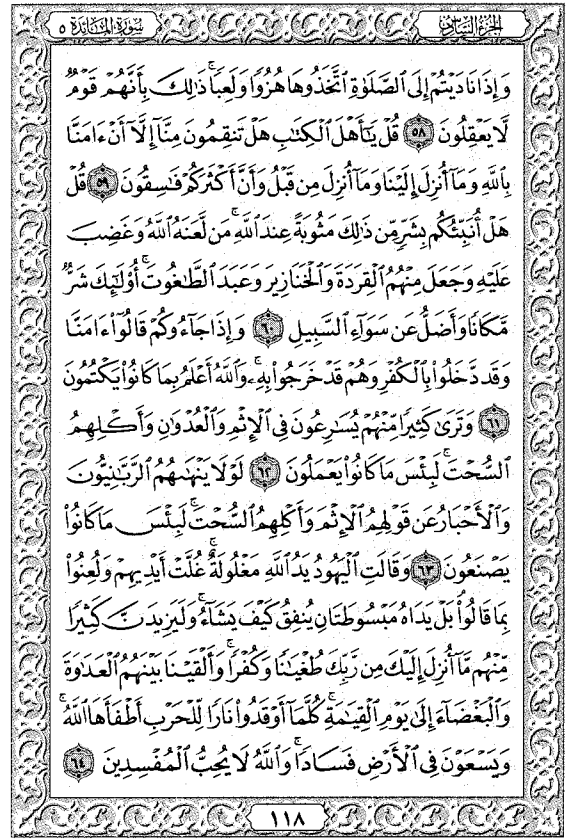 سورة المائدة ٥ الجزء السادس
وَإِذَا نَادَيْتُمْ إِلَى ٱلصَّلَوٰةِ ٱتَّخَذُوهَا هُزُوًا وَلَعِبًاۚ ذَٰلِكَ بِأَنَّهُمْ قَوْمٌ
لَّا يَعْقِلُونَ ٥٨ قُلْ يَٰٓأَهْلَ ٱلْكِتَٰبِ هَلْ تَنقِمُونَ مِنَّآ إِلَّآ أَنْ ءَامَنَّا
بِٱللَّهِ وَمَآ أُنزِلَ إِلَيْنَا وَمَآ أُنزِلَ مِن قَبْلُ وَأَنَّ أَكْثَرَكُمْ فَٰسِقُونَ ٥٩ قُلْ
هَلْ أُنَبِّئُكُم بِشَرٍّ مِّن ذَٰلِكَ مَثُوبَةً عِندَ ٱللَّهِۚ مَن لَّعَنَهُ ٱللَّهُ وَغَضِبَ
عَلَيْهِ وَجَعَلَ مِنْهُمُ ٱلْقِرَدَةَ وَٱلْخَنَازِيرَ وَعَبَدَ ٱلطَّٰغُوتَۚ أُو۟لَٰٓئِكَ شَرٌّ
مَّكَانًا وَأَضَلُّ عَن سَوَآءِ ٱلسَّبِيلِ ٦٠ وَإِذَا جَآءُوكُمْ قَالُوٓا۟ ءَامَنَّا
وَقَد دَّخَلُوا۟ بِٱلْكُفْرِ وَهُمْ قَدْ خَرَجُوا۟ بِهِۦۚ وَٱللَّهُ أَعْلَمُ بِمَا كَانُوا۟ يَكْتُمُونَ
٦١ وَتَرَىٰ كَثِيرًا مِّنْهُمْ يُسَٰرِعُونَ فِى ٱلْإِثْمِ وَٱلْعُدْوَٰنِ وَأَكْلِهِمُ
ٱلسُّحْتَۚ لَبِئْسَ مَا كَانُوا۟ يَعْمَلُونَ ٦٢ لَوْلَا يَنْهَىٰهُمُ ٱلرَّبَّٰنِيُّونَ
وَٱلْأَحْبَارُ عَن قَوْلِهِمُ ٱلْإِثْمَ وَأَكْلِهِمُ ٱلسُّحْتَۚ لَبِئْسَ مَا كَانُوا۟
يَصْنَعُونَ ٦٣ وَقَالَتِ ٱلْيَهُودُ يَدُ ٱللَّهِ مَغْلُولَةٌۚ غُلَّتْ أَيْدِيهِمْ وَلُعِنُوا۟
بِمَا قَالُوا۟ۘ بَلْ يَدَاهُ مَبْسُوطَتَانِ يُنفِقُ كَيْفَ يَشَآءُۚ وَلَيَزِيدَنَّ كَثِيرًا
مِّنْهُم مَّآ أُنزِلَ إِلَيْكَ مِن رَّبِّكَ طُغْيَٰنًا وَكُفْرًاۚ وَأَلْقَيْنَا بَيْنَهُمُ ٱلْعَدَٰوَةَ
وَٱلْبَغْضَآءَ إِلَىٰ يَوْمِ ٱلْقِيَٰمَةِۚ كُلَّمَآ أَوْقَدُوا۟ نَارًا لِّلْحَرْبِ أَطْفَأَهَا ٱللَّهُۚ
وَيَسْعَوْنَ فِى ٱلْأَرْضِ فَسَادًاۚ وَٱللَّهُ لَا يُحِبُّ ٱلْمُفْسِدِينَ ٦٤
١١٨